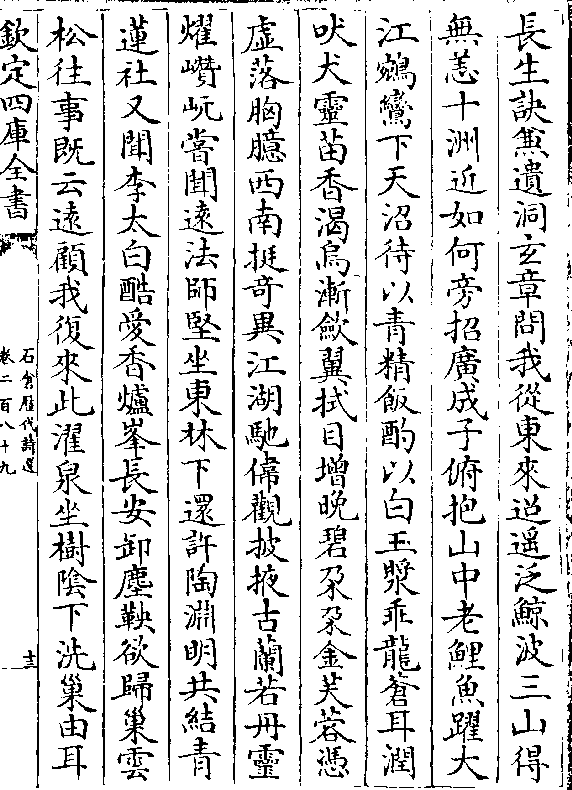 長生訣兼遺洞玄章問我從東來迢遥泛鯨波三山得
無恙十洲近如何旁招廣成子俯抱山中老鯉魚躍大
江鵷鸞下天沼待以青精飯酌以白玉漿乖龍蒼耳潤
吠犬靈苗香渴烏漸歛翼拭目增晚碧朶朶金芙蓉憑
虚落胸臆西南挺奇異江湖馳偉觀披掖古蘭若丹靈
燿巑岏嘗聞遠法師堅坐東林下還許陶淵明共結青
蓮社又聞李太白酷愛香爐峯長安卸塵鞅欲歸巢雲
松往事既云遠顧我復來此濯泉坐樹陰下洗巢由耳
欽定四庫全書
石倉歴代詩選
卷二百八十九
十三